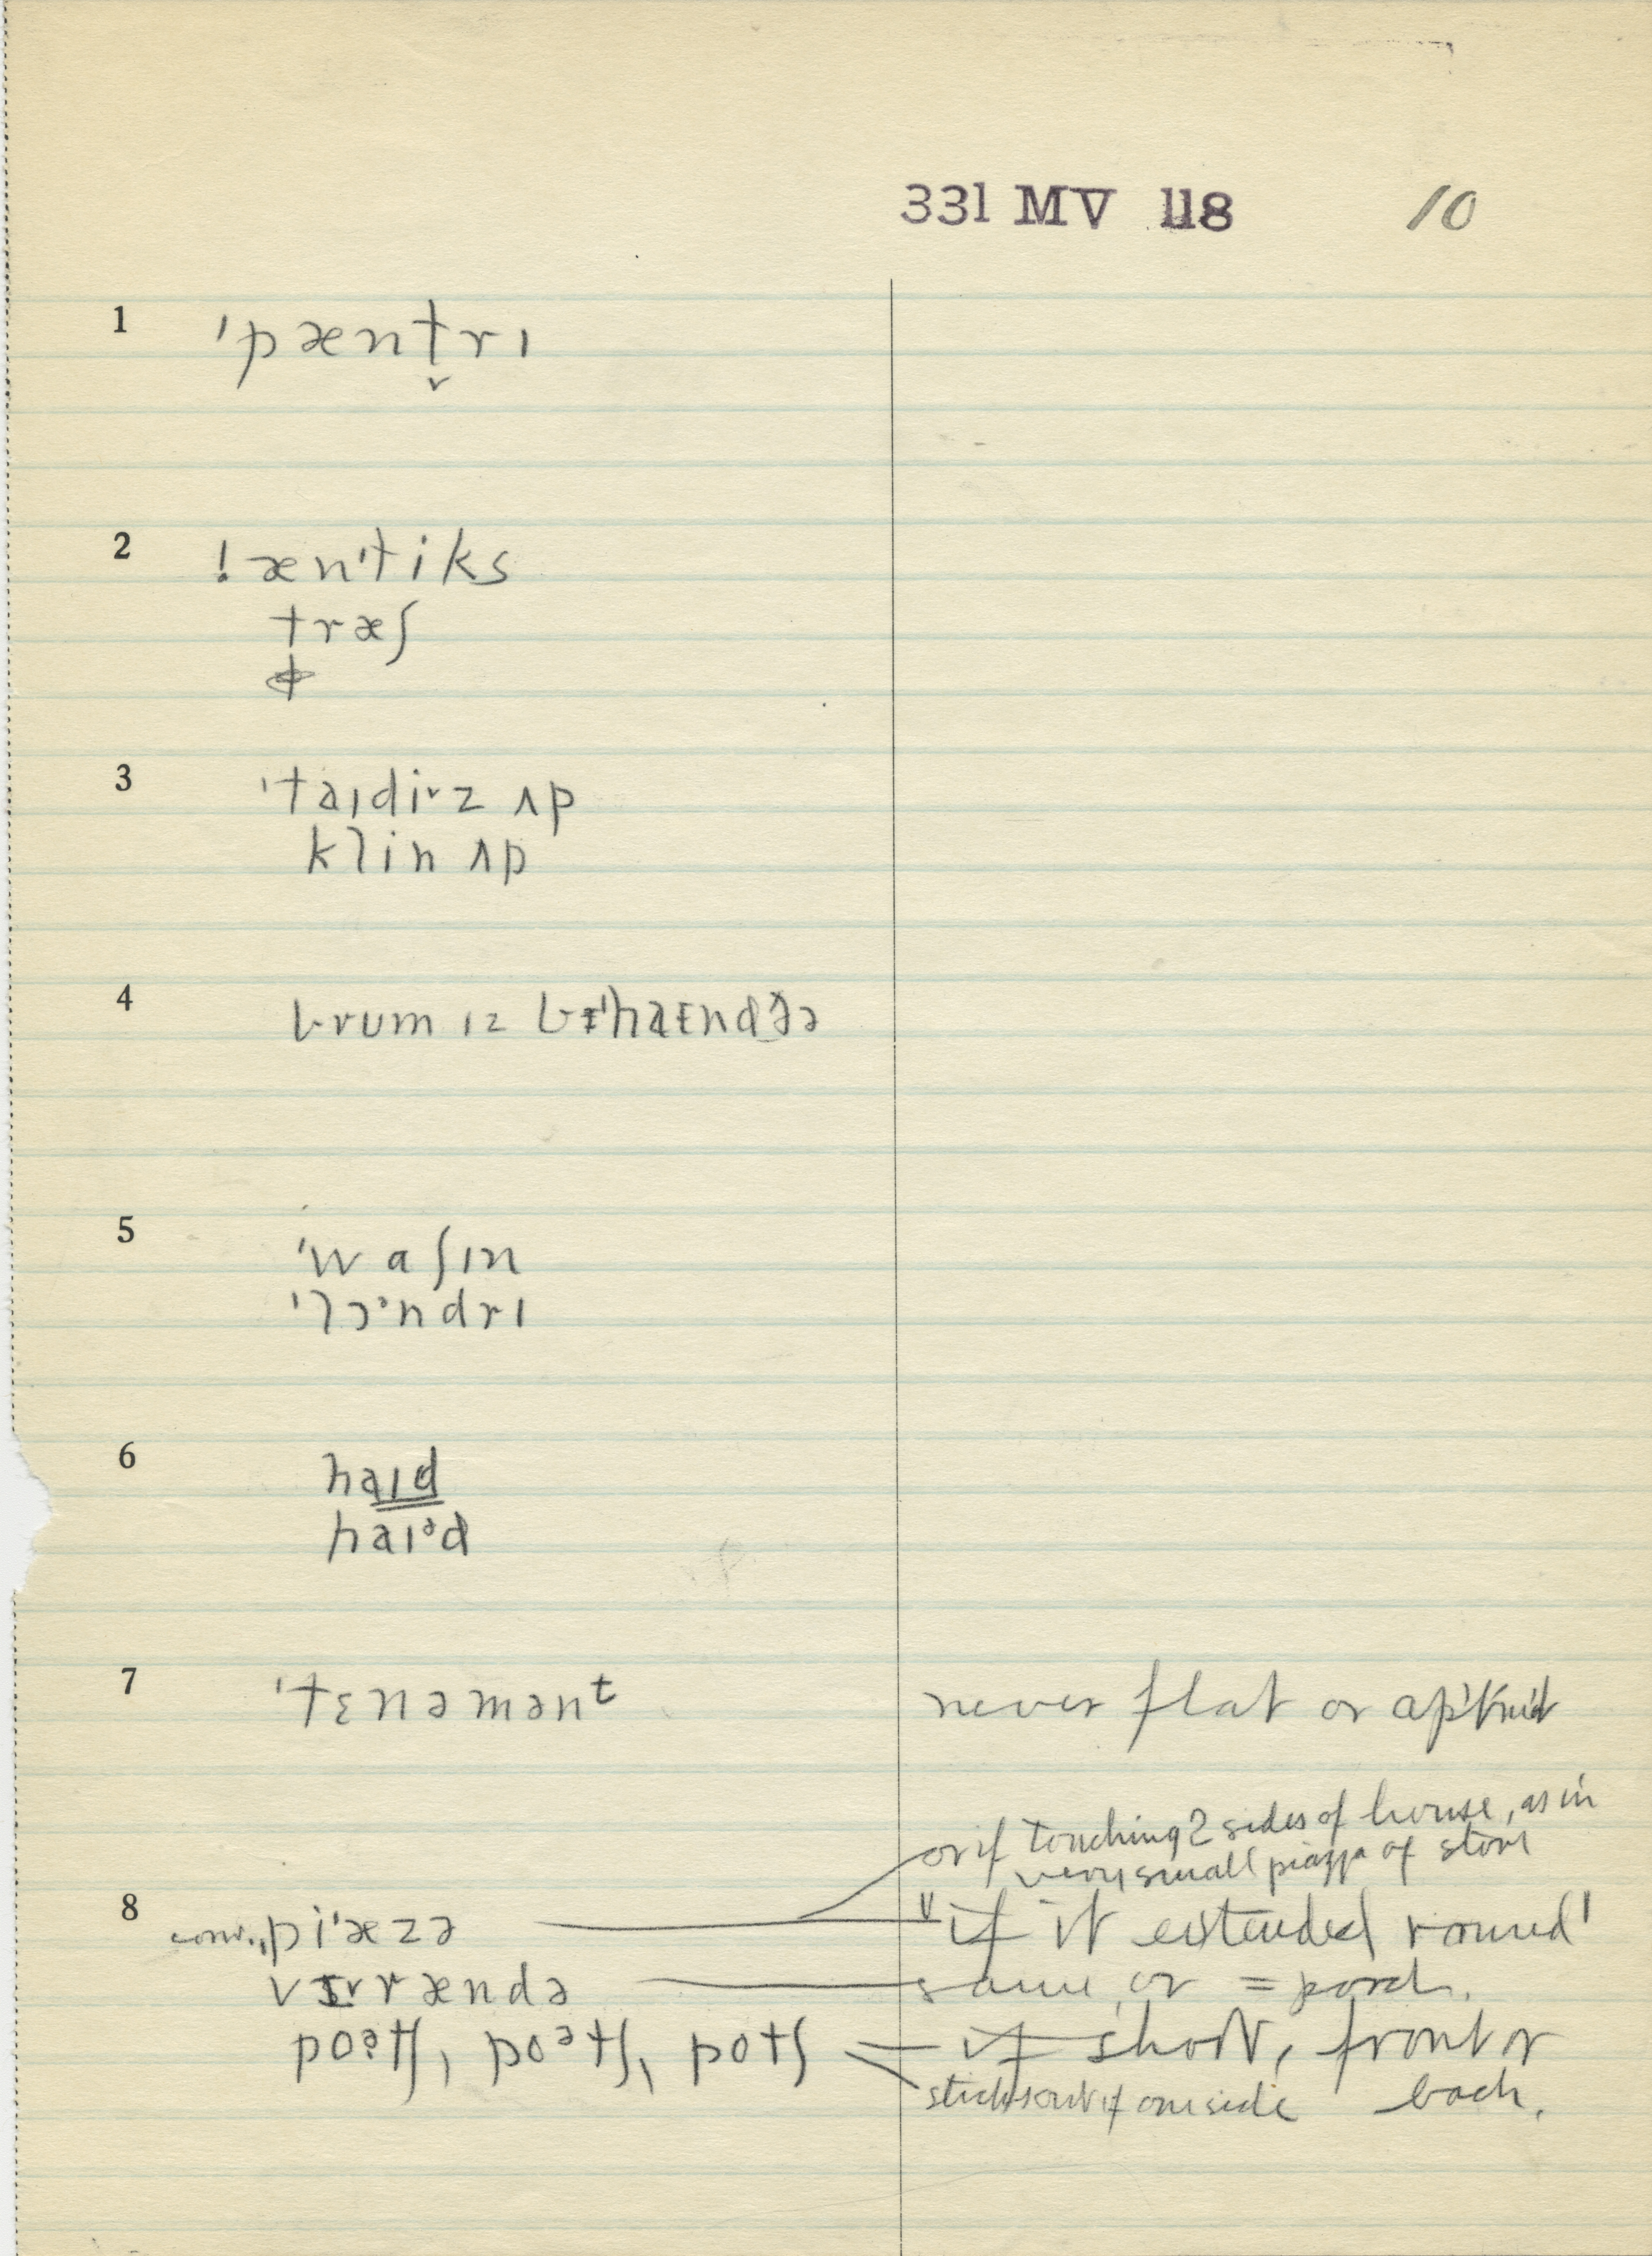 331 MV 118 10
1 ˈpæntṛɪ
2 ! ænˈtiks
træʃ
3 ˈtaɪdiz ʌp
klin ʌp
4 brum ɪz
5 ˈwaʃɪn
ˈlɔᵊndrɪ
6 haɪd
haɪᵊd
7 ˈtɛnəmənᵗ never flat or
or if touching 2 sides of house, as in
very small piazza of store
8 conv. piˈæzə "if it extended round'
vɪrændə same or = porch.
poᵊtʃ, poᵊtʃ, potʃ if short, front or
sticks out if one side back.